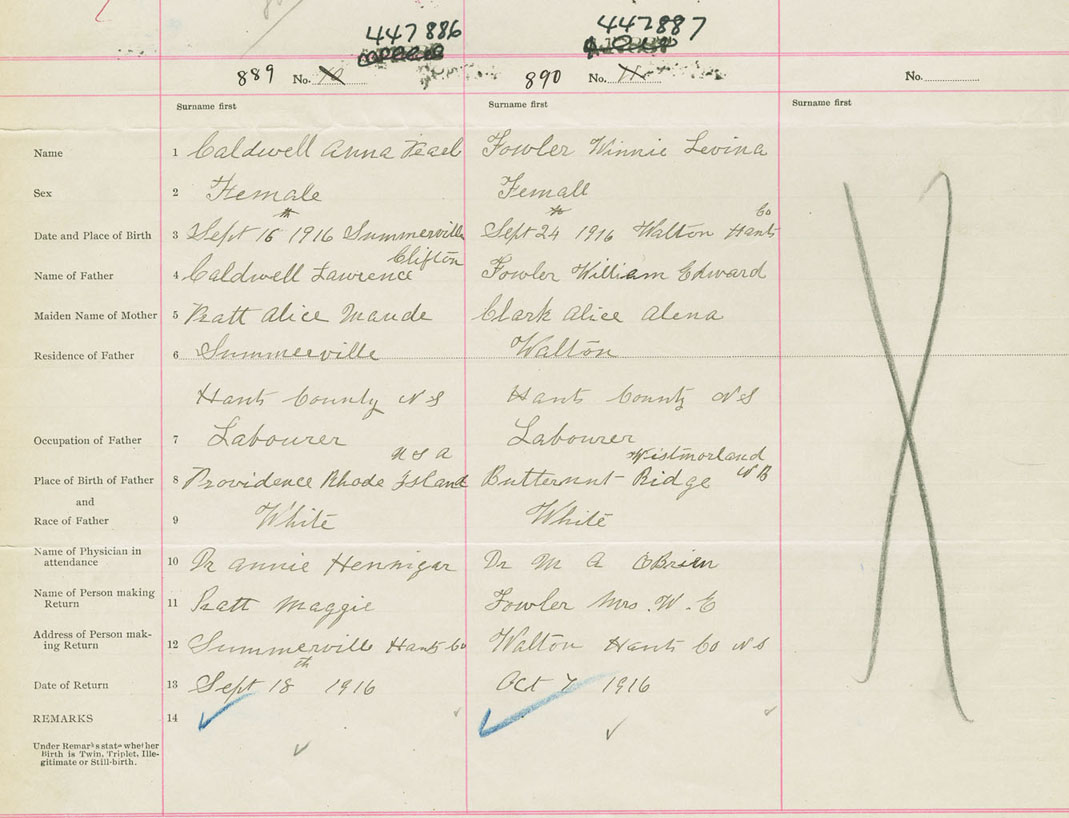 447886 447887
889 No. 890 No. No.
Surname first Surname first Surname first
Name 1 Caldwell Anna Pearl Fowler Winnie Levina
Sex 2 Female Female
th th Co
Date and Place of Birth 3 Sept 16 1916 Summerville Sept 24 1916 Walton Hants
Clifton
Name of Father 4 Caldwell Lawrence Fowler William Edward
Maiden Name of Mother 5 Pratt Alice Maude Clark Alice Alena
Residence of Father 6 Summerville Walton
Hants County N S Hants County N S
Occupation of Father 7 Labourer Labourer
U S A Westmorland
Place of Birth of Father 8 Providence Rhode Island Butternut Ridge N B
and
Race of Father 9 White White
Name of Physician in
attendance 10 Dr Annie Hennigar Dr M A OBrien
Name of Person making
Return 11 Pratt Maggie Fowler Mrs. W. E
Address of Person mak-
ing Return 12 Summerville Hants Co Walton Hants Co N S
th
Date of Return 13 Sept 18 1916 Oct 7 1916
REMARKS 14
Under Remarks state whether
Birth is Twin, Triplet, Ille-
gitimate or Still-birth.